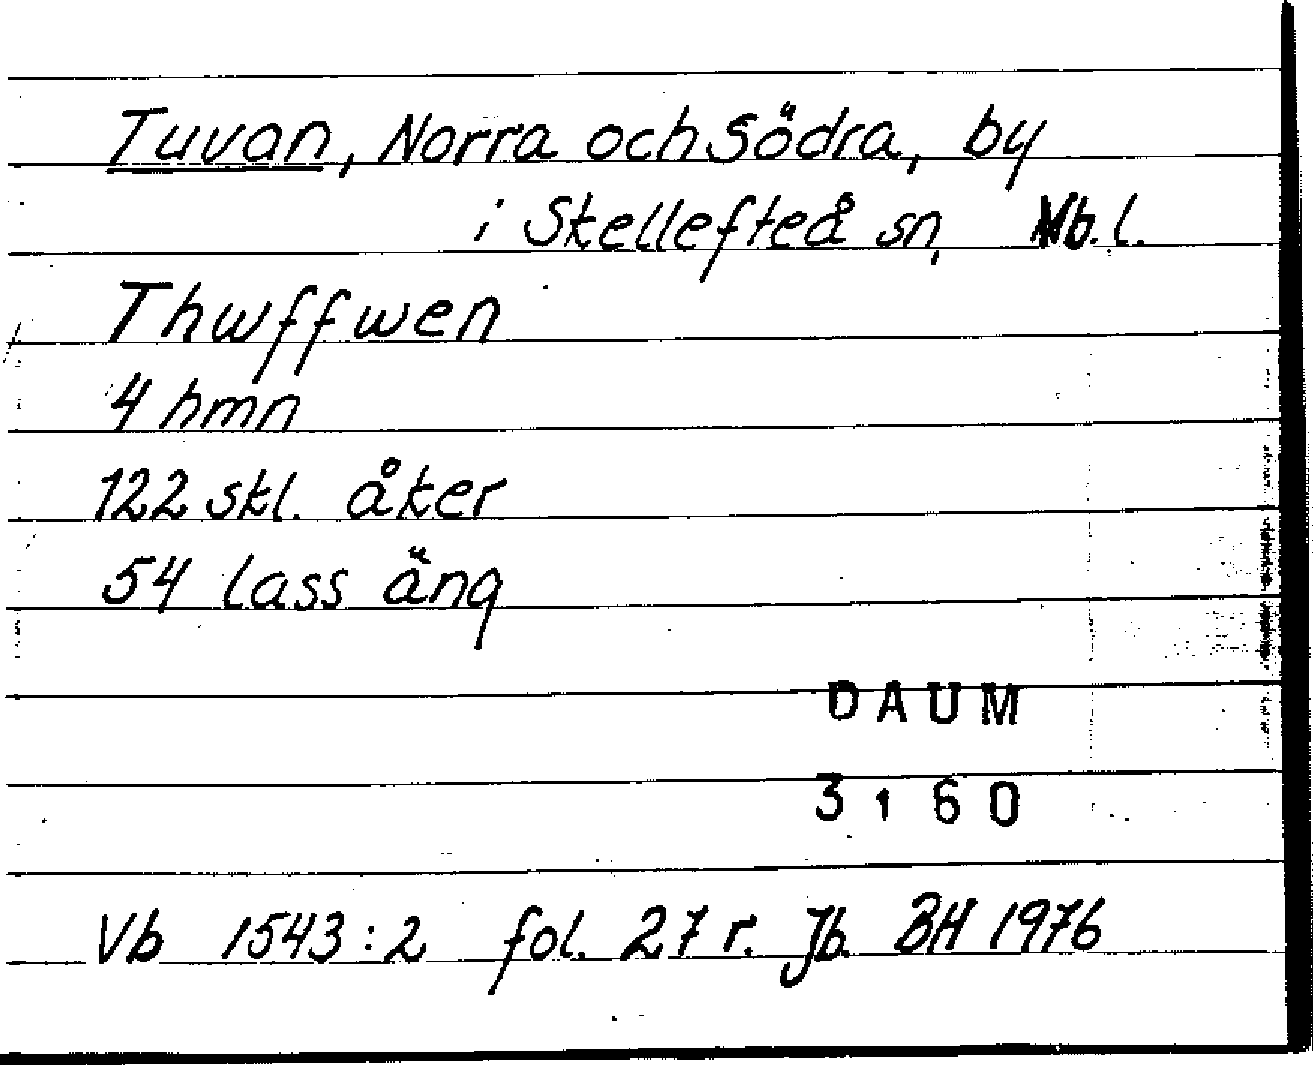 Tuvan, Norra och Södra, by
i Skellefteå sn, Vb. l.
Thwffwen
4 hmn
122 skl. åker
54 lass äng
DAUM
3160
Vb 1543:2 fol. 27 r. Jb. BH 1976